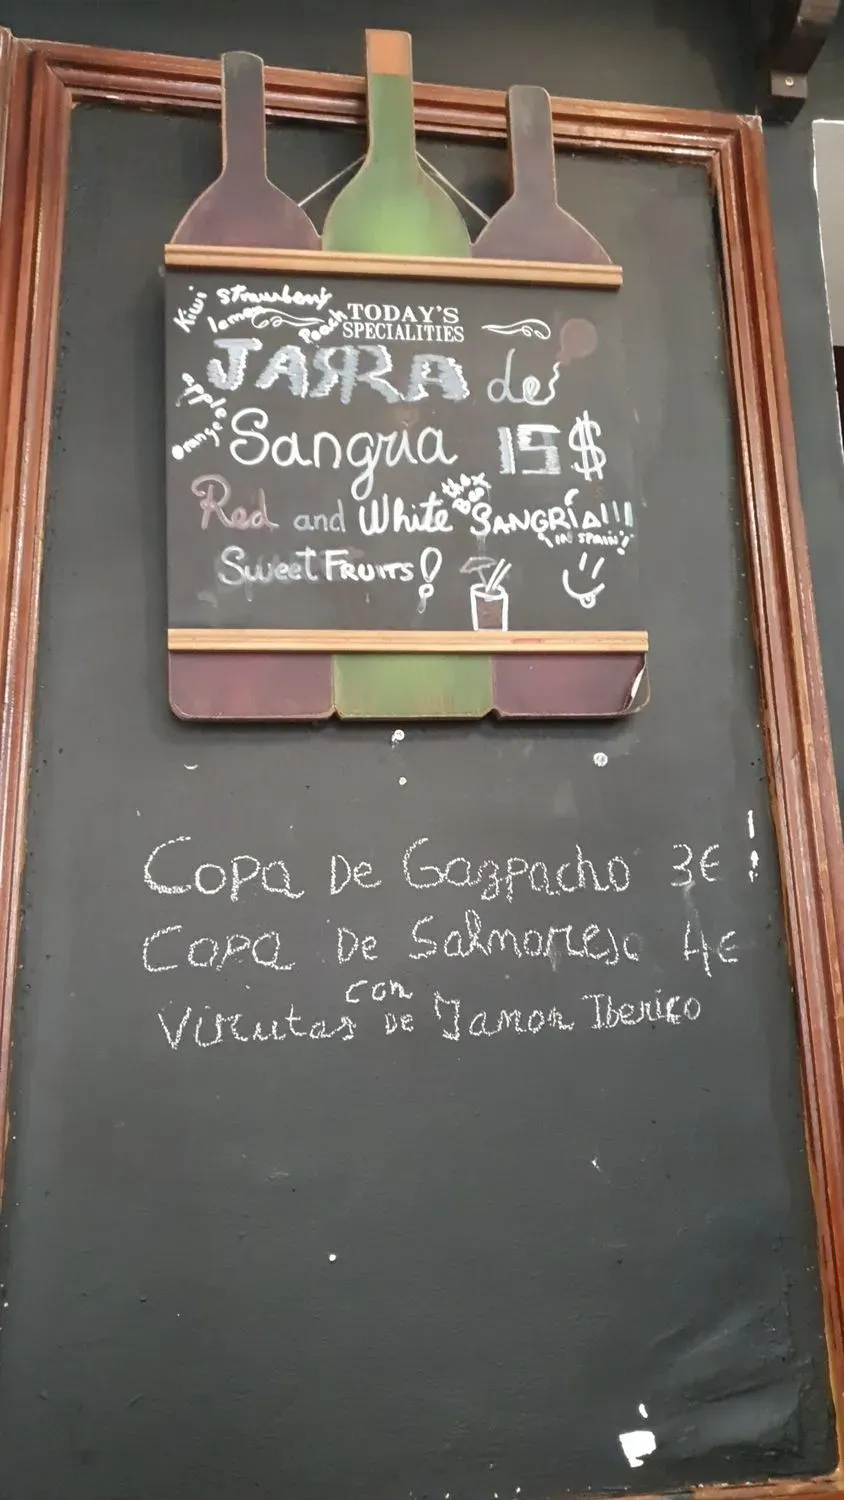 Kiwi strawberry
lemon Peach
TODAY'S
SPECIALITIES
apple
orange
JARRA de
Sangria 15$
Red and White the Best SANGRÍA!!!
IN SPAIN!
Sweet FRUITS!
COPA De Gazpacho 3€ !
COPA De Salmorejo 4€
con
Virutas DE Jamon Iberico